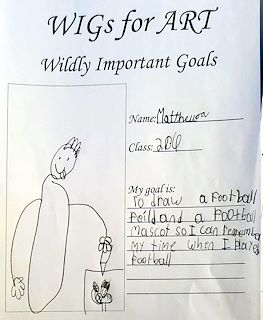 WIGs for ART
Wildly Important Goals
Name: Matthewson
Class: 206
My goal is:
To draw a football
Feild and a Football
Mascot so I can remember
my time when I played
Football